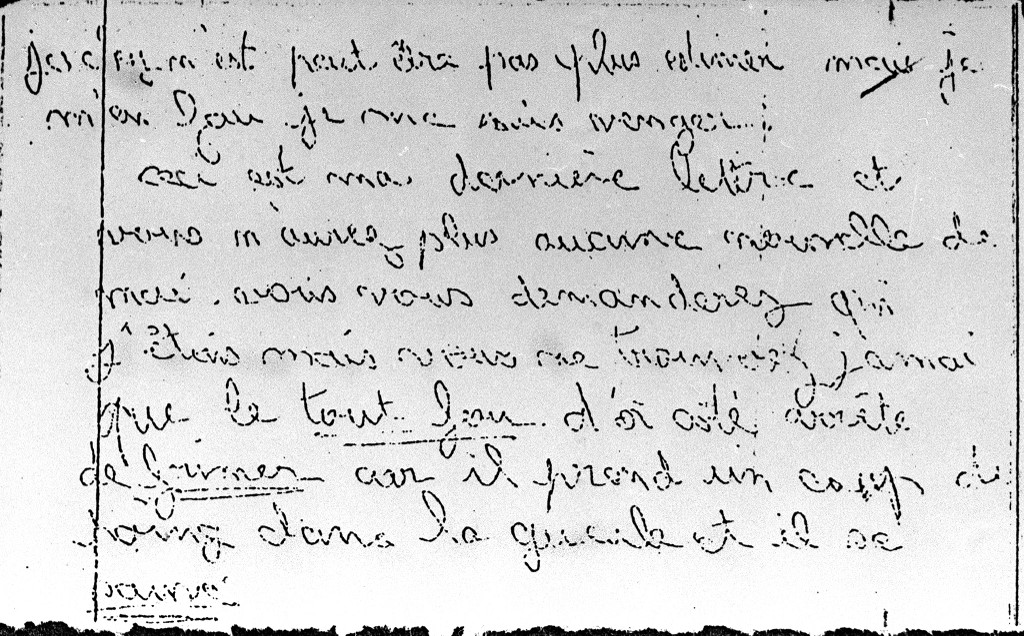 n'est peut être pas plus estimer mais je
m'en fou je me suis venger.
ceci est ma dernière lettre et
vous n'aurez plus aucune nouvelle de
moi. vous vous demanderez qui
j'étais mais vous ne trouverez jamai
que le tout fou d'à côté arrête
de frimer car il prend un coup de
poing dans la gueule et il se
sauve